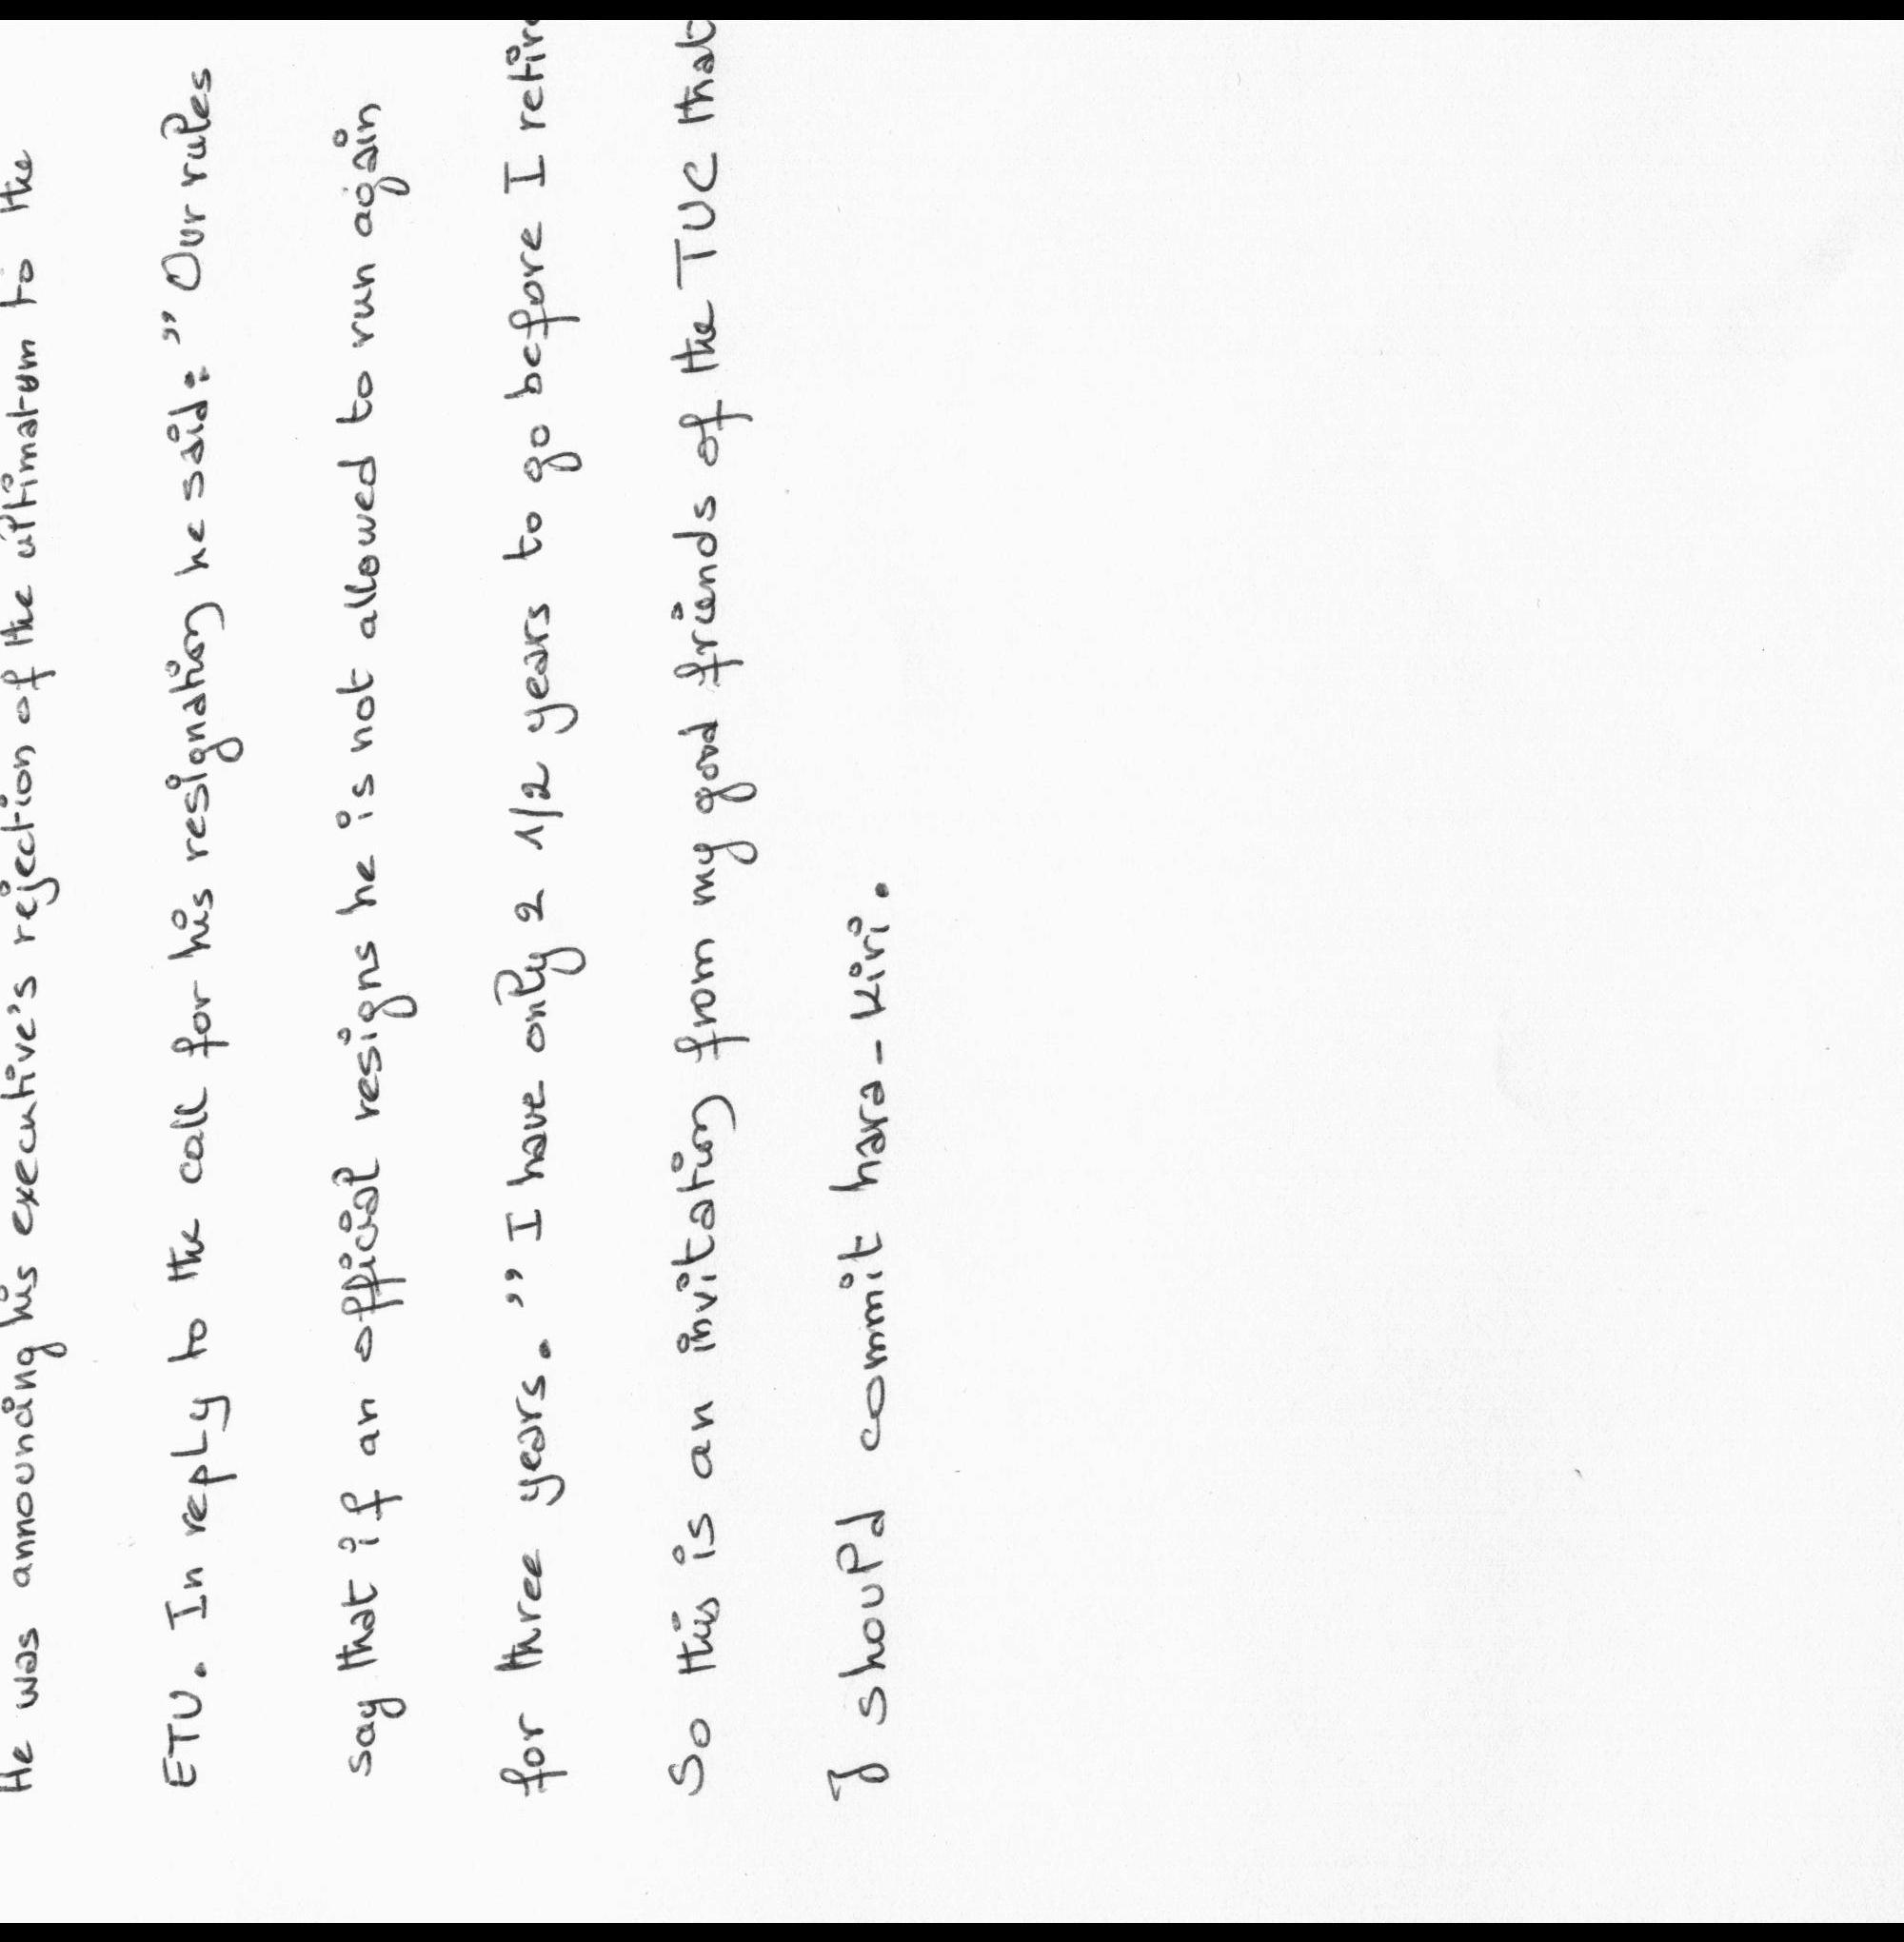 He was announcing his executive's rejection of the ultimatum to the
ETU. In reply to the call for his resignation he said: " Our rules
say that if an official resigns he is not allowed to run again
for three years. " I have only 2 1/2 years to go before I retir
So this is an invitation from my good friends of the TUC that
I should commit hara-kiri.